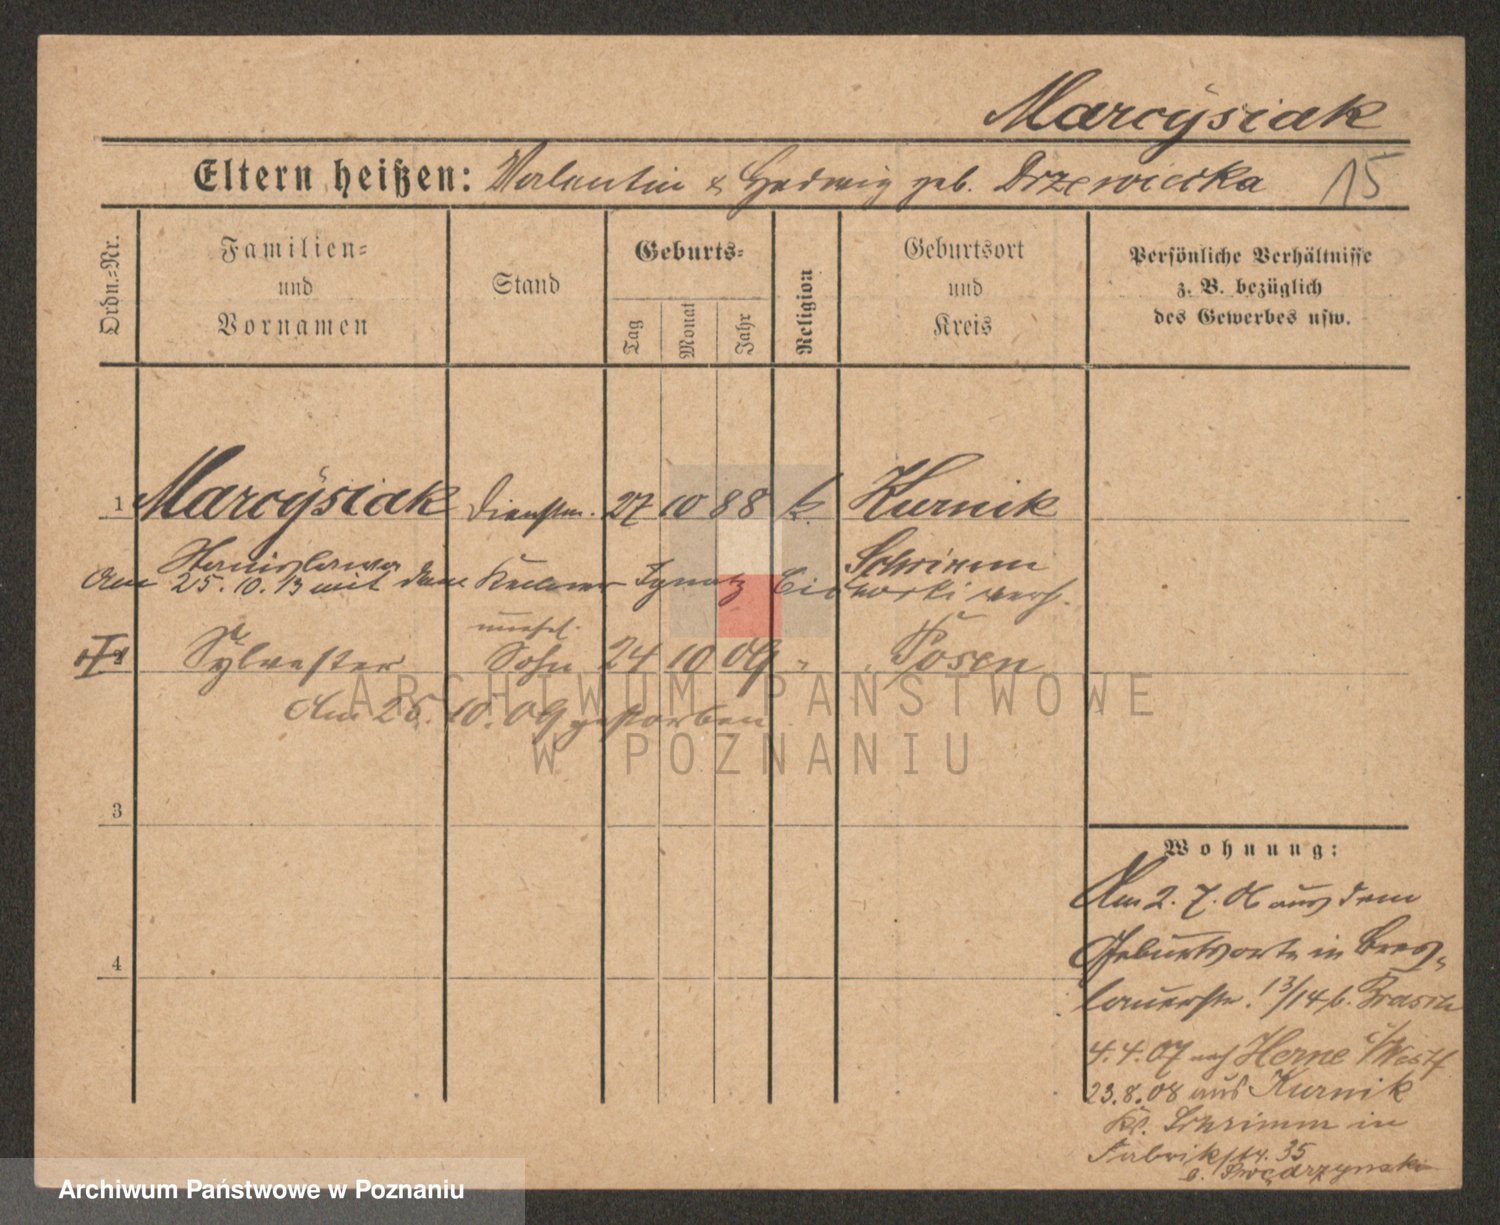 Marcÿsiak
Eltern heißen: Valentin & Hedwig geb. Drzewiecka 15
Ordn.-Nr.
Familien-
und
Vornamen
Stand
Geburts-
Tag
Monat
Jahr
Religion
Geburtsort
und
Kreis
Persönliche Verhältnisse
z. B. bezüglich
des Gewerbes usw.
1 Marcÿsiak Dienstm. 27 10 88 k. Kurnik
Stanislawa Schrimm
Am 25. 10. 13 mit dem Kellner Ignatz verh.
unehel.
2 Sylvester Sohn 24 10 09 " Posen
Am 25. 10. 09 gestorben
3
4
Wohnung:
Am 2. 7. 06 aus dem
Geburtsorte in Bres-
lauerstr. 13/14 b. Brasch
4. 4. 07 nach Herne i/Westf
23. 8. 08 aus Kurnik
Kr. Schrimm in
Fabrikstr. 35
ARCHIWUM PAŃSTWOWE
W POZNANIU
Archiwum Państwowe w Poznaniu